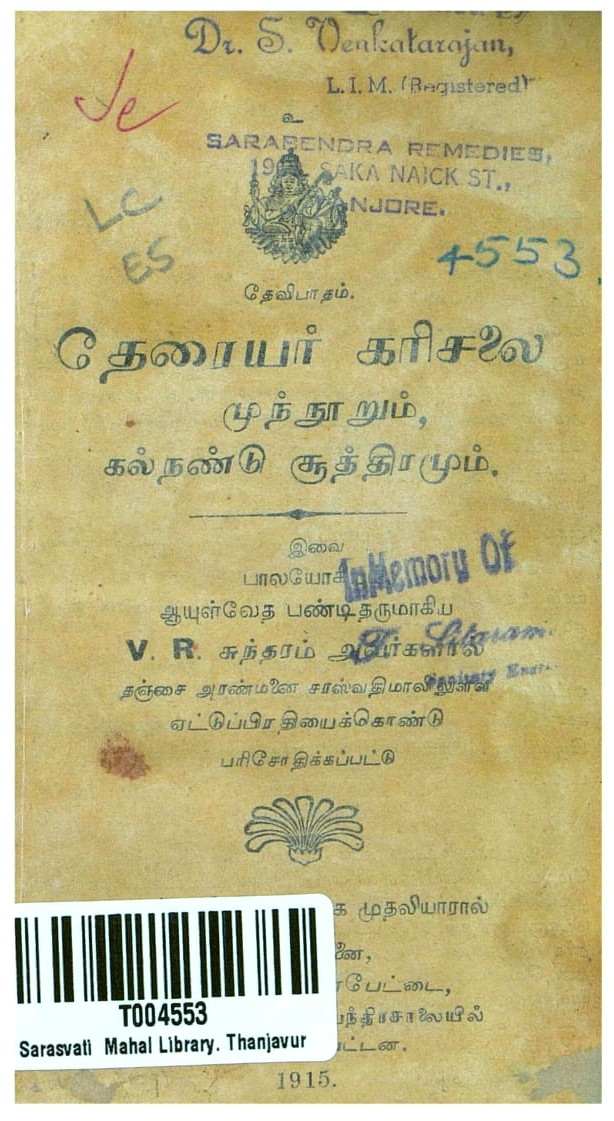 Dr. S. Venkatarajan,
L.I.M. (Registered)
உ
SARABENDRA REMEDIES,
SAKA NAICK ST.,
NJORE.
LC
ES
4553
தேவிபாதம்.
தேரையர் கரிசலை
முந்நூறும்,
கல்நண்டு சூத்திரமும்.
இவை
பாலயோகி
In Memory Of
ஆயுள்வேத பண்டிதருமாகிய
V. R. சுந்தரம் அவர்களால்
தஞ்சை அரண்மனை சரஸ்வதிமாலிலுள்ள
ஏட்டுப்பிரதியைக்கொண்டு
பரிசோதிக்கப்பட்டு
முதலியாரால்
பேட்டை,
T004553
Sarasvati Mahal Library. Thanjavur
1915.